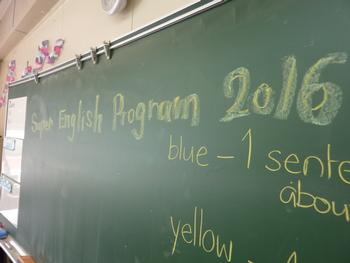 Super English Program 2016
blue - 1 sente
abou
yellow -